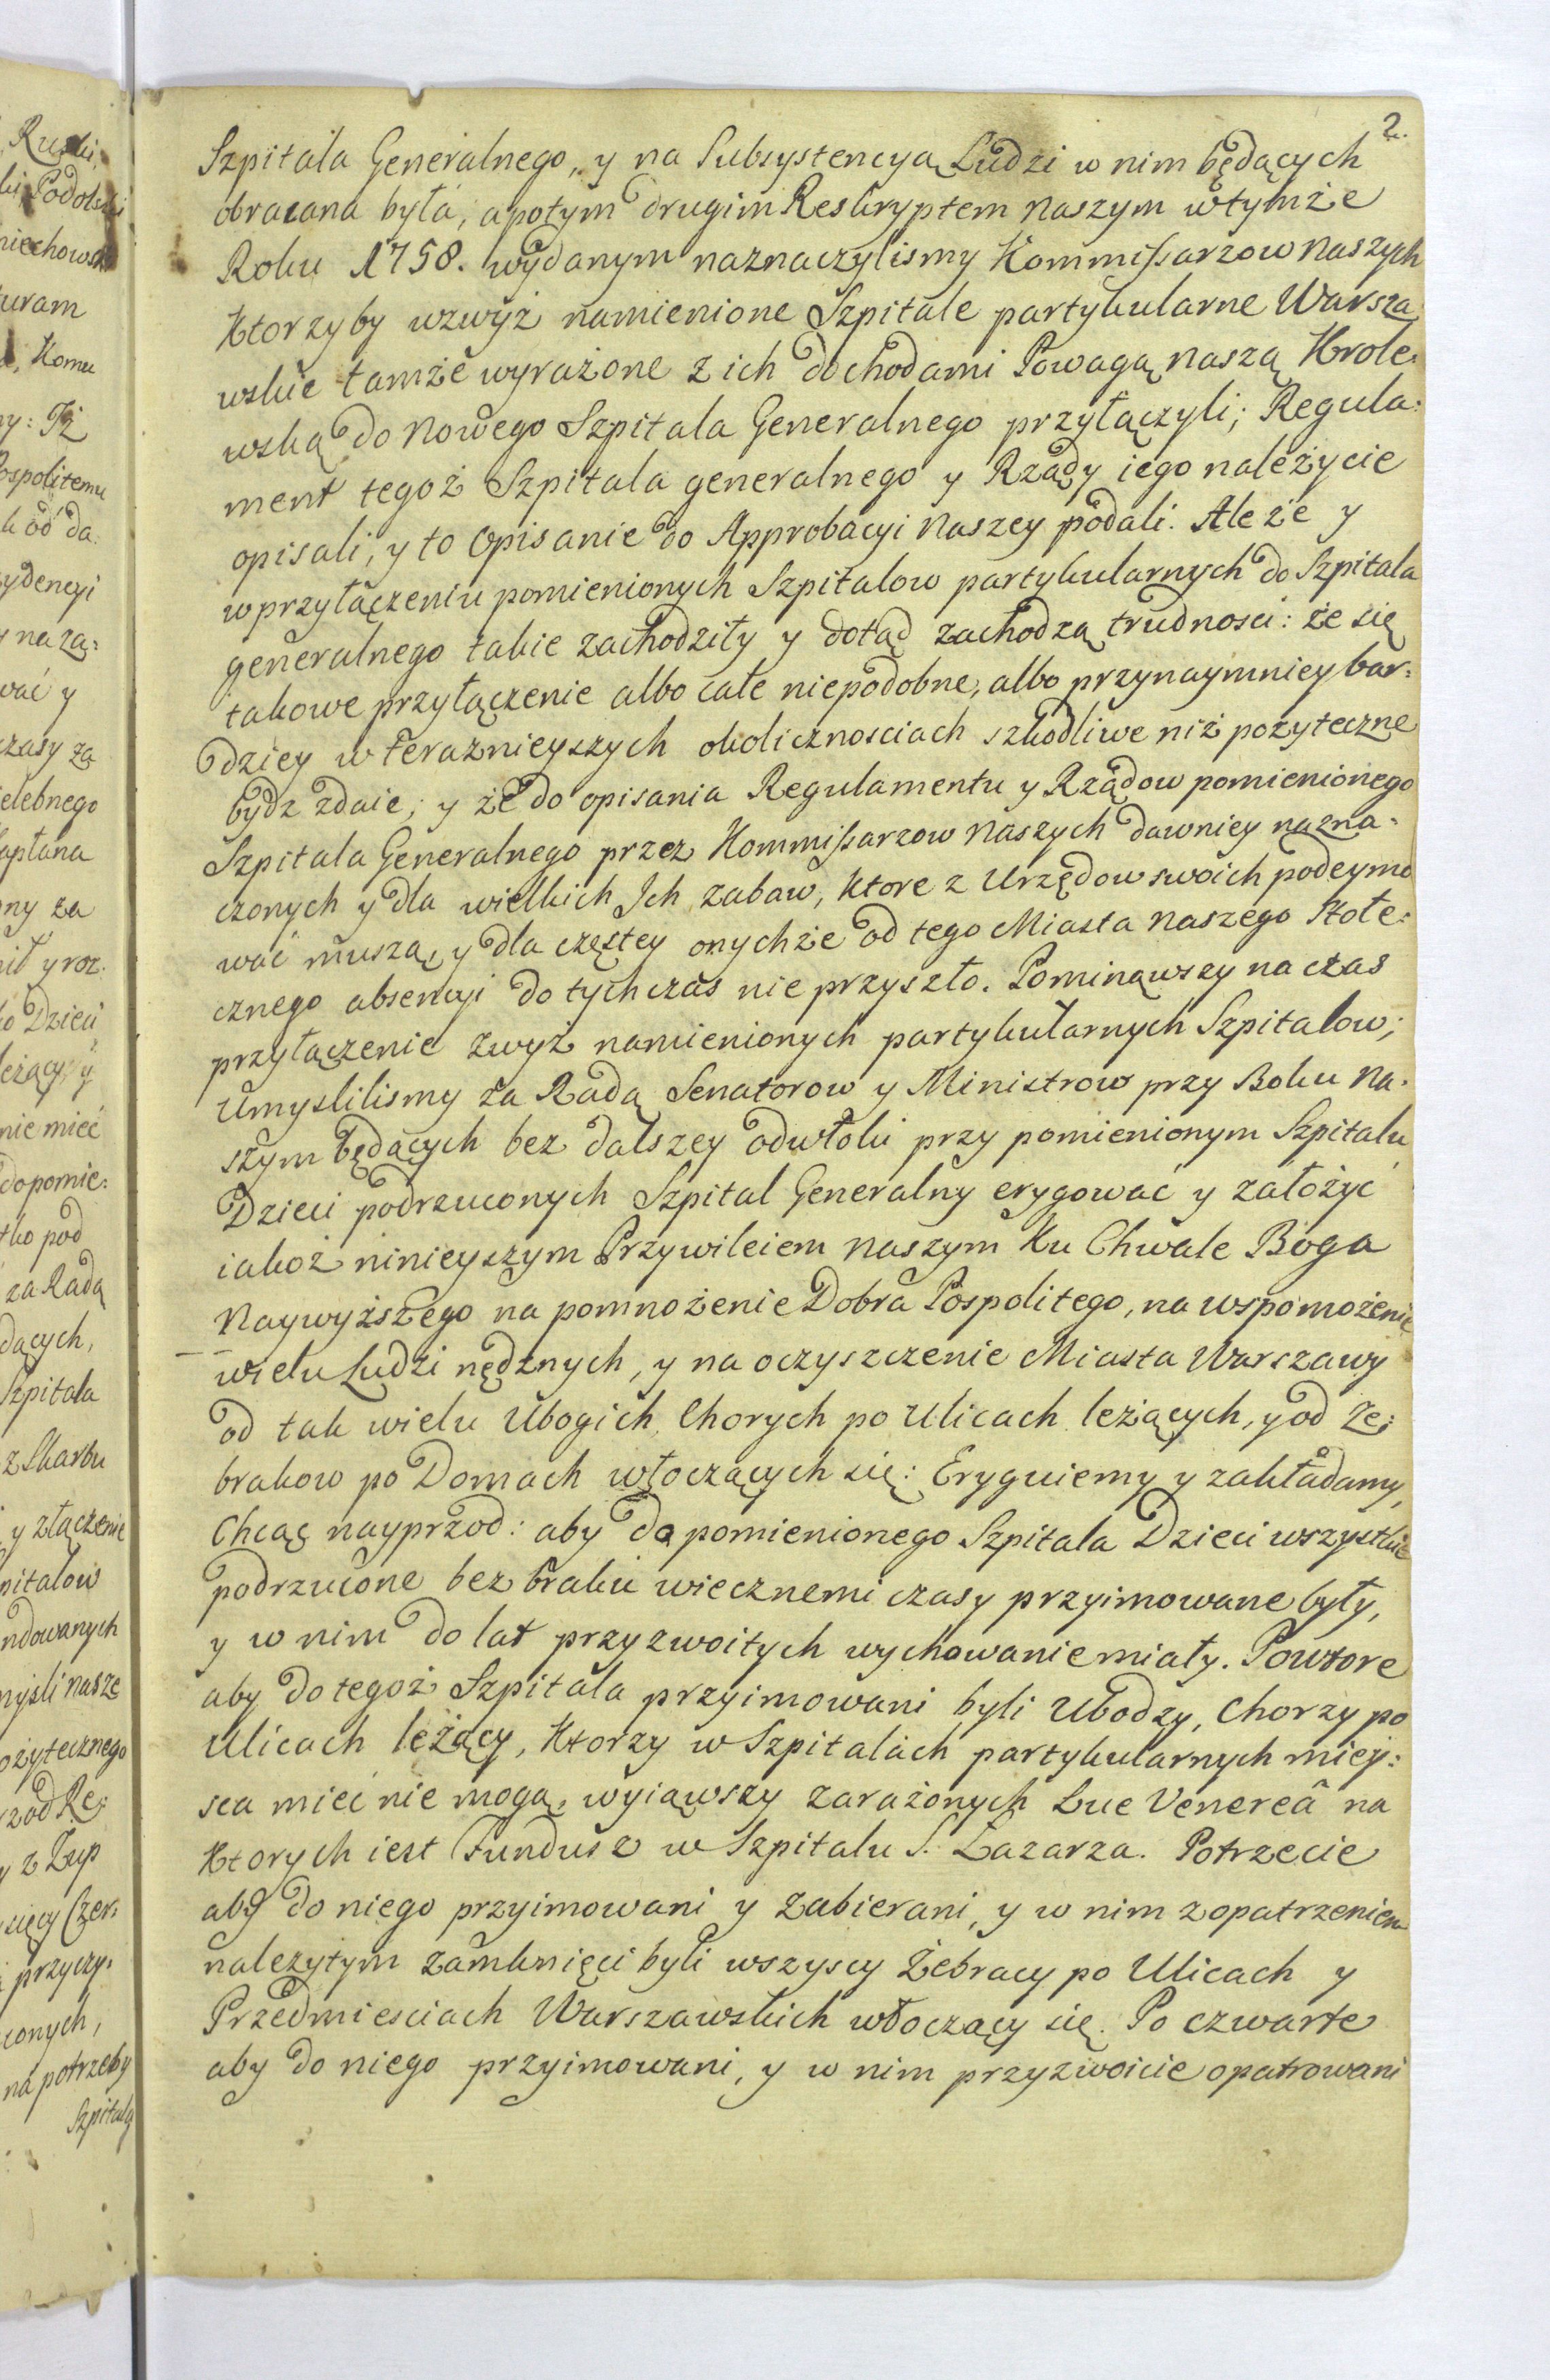 2.
Szpitala Generalnego, y na Subsystencyą Ludzi w nim będących
obracana była, a potym drugim Reskryptem Naszym w tymże
Roku 1758. wydanym naznaczylismy Kommissarzow Naszych
Ktorzyby wzwyż namienione Szpitale partykularne Warsza
wskie tamże wyrażone z ich dochodami Powagą Naszą Krole:
wską do Nowego Szpitala Generalnego przyłączyli; Regula:
ment tegoż Szpitala generalnego y Rządy iego należycie
opisali, y to Opisanie do Approbacyi Naszey podali. Ale że y
w przyłączeniu pomienionych Szpitalow partykularnych do Szpitala
generalnego takie zachodziły y dotąd zachodzą trudnosci: że się
takowe przyłączenie albo całe niepodobne, albo przynaymniey bar:
dziey w teraznieyszych okolicznosciach szkodliwe niż pozyteczne
bydz zdaie; y że do opisania Regulamentu y Rządow pomienionego
Szpitala Generalnego przez Kommissarzow Naszych dawniey nazna:
czonych y dla wielkich Ich zabaw, Ktore z Urzędow swoich podeymo
wać muszą, y dla częstey onychże od tego Miasta Naszego Stołe:
cznego absencyi do tych czas nie przyszło. Pominąwszy na czas
przyłączenie zwyż namienionych partykularnych Szpitalow;
Umyslilismy za Radą Senatorow y Ministrow przy Boku Na:
szym będących bez dalszey odwłoki przy pomienionym Szpitalu
Dzieci podrzuconych Szpital Generalny erygować y założyć
iakoż ninieyszym Przywileiem Naszym Ku Chwale Boga
Naywyższego na pomnożenie Dobra Pospolitego, na wspomożenie
wielu Ludzi nędznych, y na oczyszczenie Miasta Warszawy
od tak wielu Ubogich Chorych po Ulicach leżących, y od Że:
brakow po Domach włoczących się: Eryguiemy y zakładamy,
Chcąc nayprzod: aby do pomienionego Szpitala Dzieci wszystkie
podrzucone bez braku wiecznemi czasy przyimowane były,
y w nim do lat przyzwoitych wychowanie miały. Powtore
aby do tegoż Szpitala przyimowani byli Ubodzy, Chorzy po
Ulicach leżący, Ktorzy w Szpitalach partykularnych miey:
sca mieć nie mogą, wyiąwszy zarażonych Lue Venereâ na
Ktorych iest Fundusz w Szpitalu S. Lazarza. Potrzecie
aby do niego przyimowani y zabierani, y w nim z opatrzeniem
nalezytym zamknięci byli wszyscy Żebracy po Ulicach y
Przedmiesciach Warszawskich włoczący się. Po czwarte
aby do niego przyimowani, y w nim przyzwoicie opatrowani